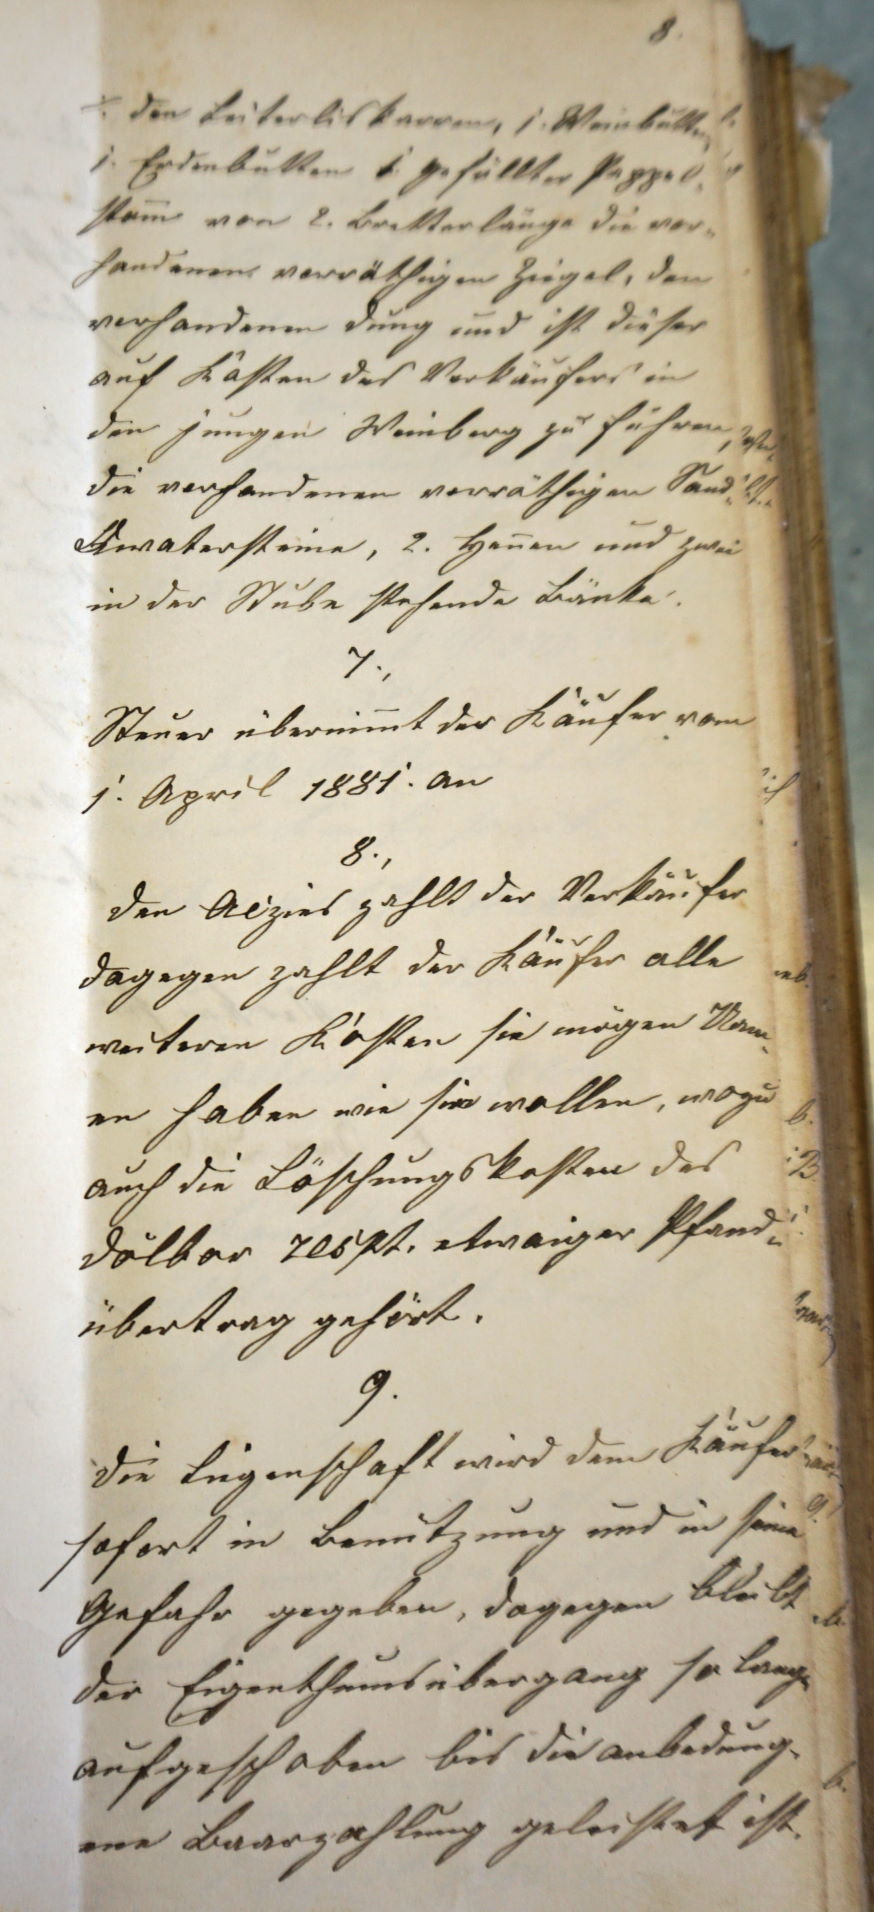 8.
den Leiterliskarren, 1. Weinbutten
1. Erdenbutten 1. gefällter Pappel-
stam̅ von 2. Bretterlänge die vor-
handenen vorräthigen Ziegel, den
vorhandenen Dung und ist dieser
auf Kosten des Verkäufers in
den jungen Weinberg zu führen,
die vorhandenen vorräthigen Sand-
Quatersteine, 2. Hen̅en und zwei
in der Stube stehende Bänke.
7.,
Steuer übernim̅t der Käufer vom
1. April 1881. an
8.,
Den Aczies zahlt der Verkäufer
dagegen zahlt der Käufer alle
weiteren Kosten sie mögen Nam-
en haben wie sie wollen, wozu
auch die Löschungskosten des
respt. etwaiger Pfand-
übertrag gehört.
9.
Die Liegenschaft wird dem Käufer
sofort in Benützung und in seine
Gefahr gegeben, dagegen bleibt
der Eigenthumsübergang so lang
aufgeschoben bis die anbedung-
ene Baarzahlung geleistet ist.